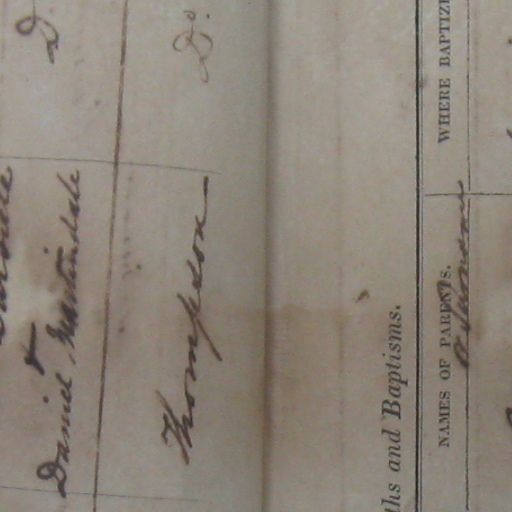 &
Daniel Martindale D
Thompson Do.
ths and Baptisms.
NAMES OF PARENTS. WHERE BAPTIZE
or Surname